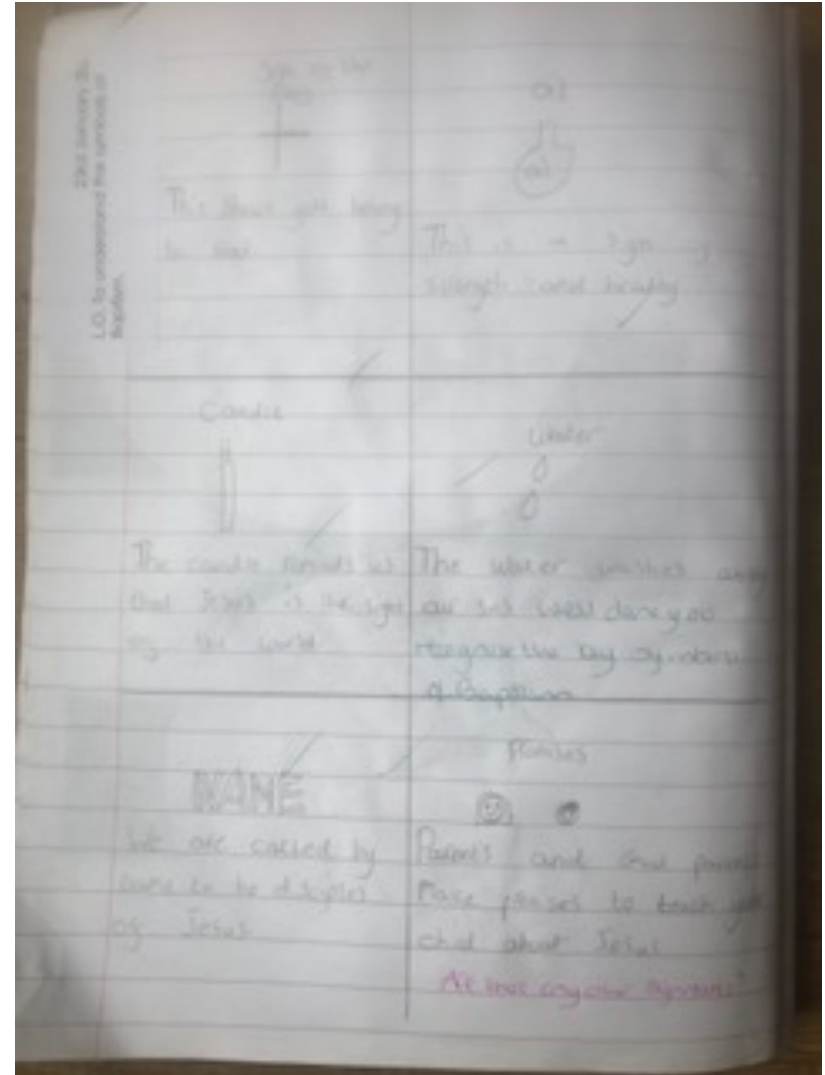 23rd January
L.O. To understand the symbols of
Baptism.
Sign of the
This shows you belong
to God
Oil
oil
This is a sign of
strength and
Candle
The candle us
that Jesus is the light
of the world
Water
The water washes away
our sins Well done you
recognise the key symbols
of Baptism
NAME
We are called by
name to be disciples
of Jesus
Promises
Parents and God parents
to teach
about Jesus
Are there any other symbols?